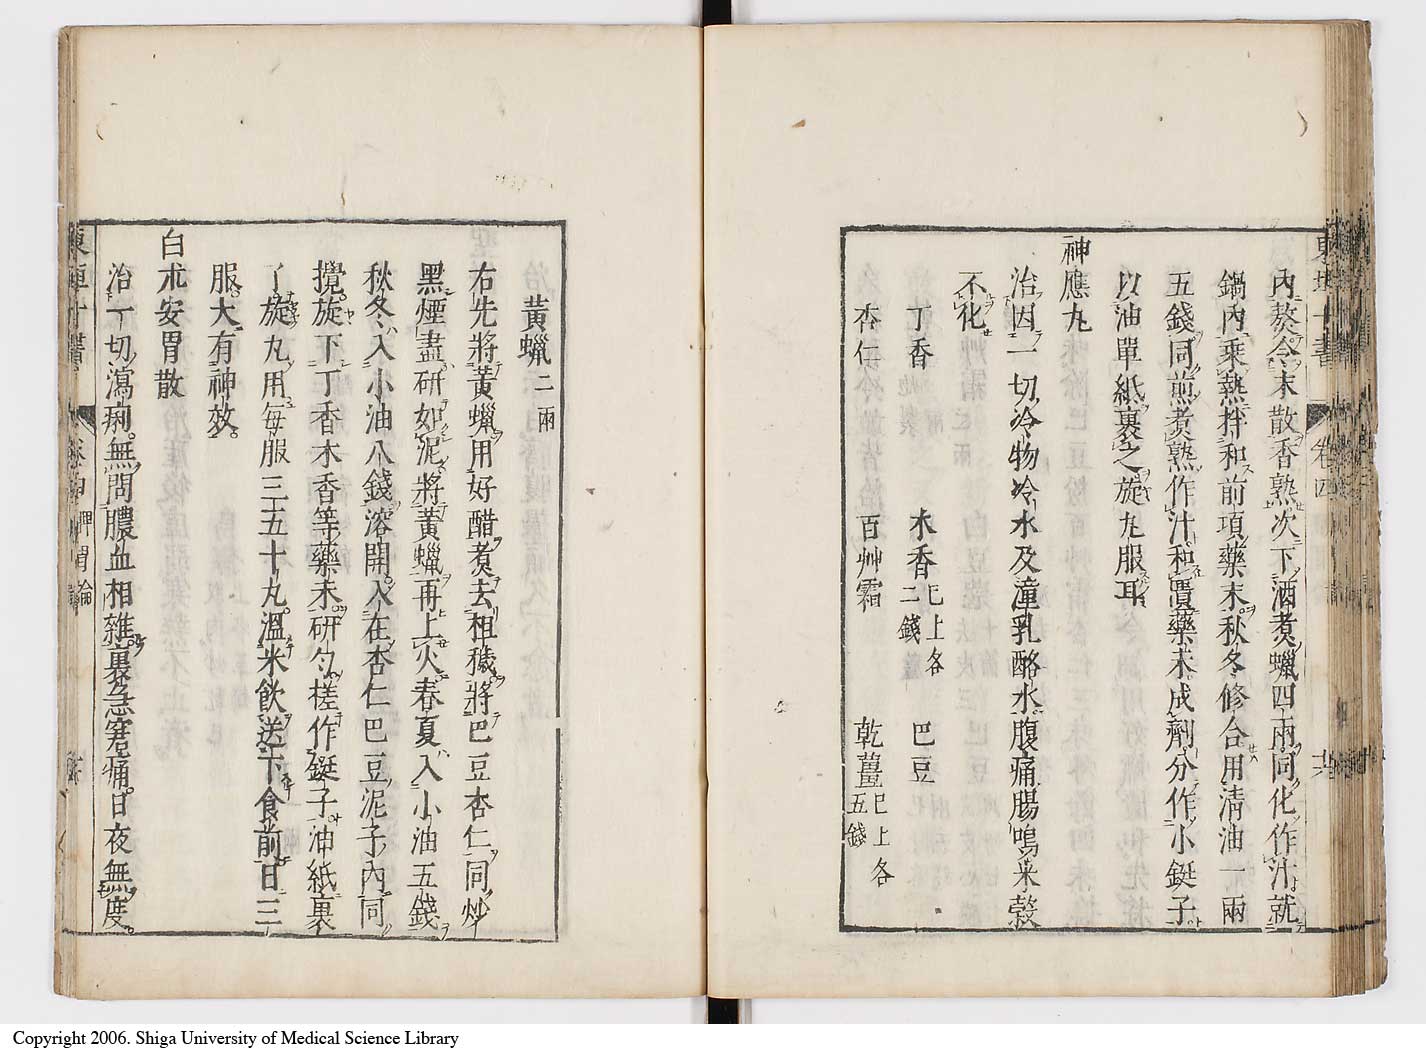 內熬令末散香熟次下酒煑蠟四兩同化作汁就
鍋內乘熱拌和前項藥末秋冬修合用清油一兩
五錢同煎煑熟作汁和匱藥末成劑分作小鋌子
以油單紙裹之旋丸服耳
神應丸
治因一切冷物冷水及潼乳酪水腹痛腸鳴米穀
不化
丁香 木香已上各二錢 巴豆
杏仁 百艸霜 乾薑已上各五錢
黃蠟二兩
右先將黃蠟用好醋煑去柤穢將巴豆杏仁同炒
黑煙盡研如泥將黃蠟再上火春夏入小油五錢
秋冬入小油八錢溶開入在杏仁巴豆泥子內同
攪旋下丁香木香等藥末研勻搓作鋌子油紙裹
了旋丸用每服三五十丸溫米飲送下食前日三
服大有神效
白朮安胃散
治一切瀉痢無問膿血相雜裏急窘痛日夜無度
東垣十書 卷四 脾胃論
Copyright 2006. Shiga University of Medical Science Library